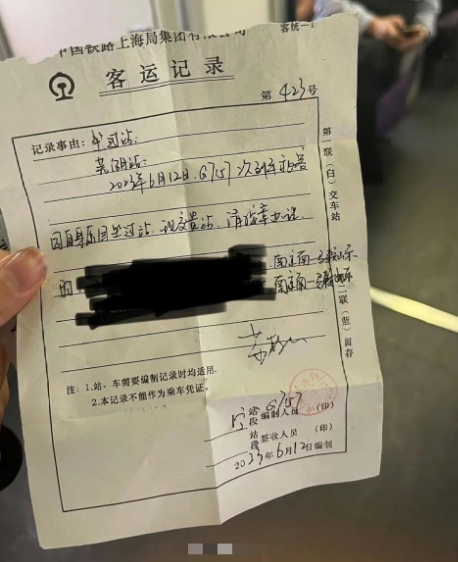 中国铁路上海局集团有限公司
客统一1
客运记录
第 423 号
记录事由:坐过站
站:
2023年6月12日.G757次列车旅客
因自身原因坐过站.现交贵站.请按章办理.
南京南—马鞍山东
的
南京南—马鞍山东
注:1.站、车需要编制记录时均适用.
2.本记录不能作为乘车凭证.
站段 编制人员 G757 (印)
站段 签收人员 (印)
2023年6月12日编制
第一联(白)交车站
二联(蓝)留存